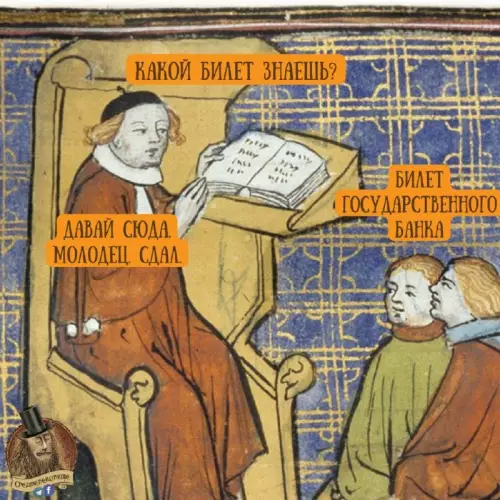 КАКОЙ БИЛЕТ ЗНАЕШЬ?
БИЛЕТ
ГОСУДАРСТВЕННОГО
БАНКА
ДАВАЙ СЮДА.
МОЛОДЕЦ. СДАЛ.